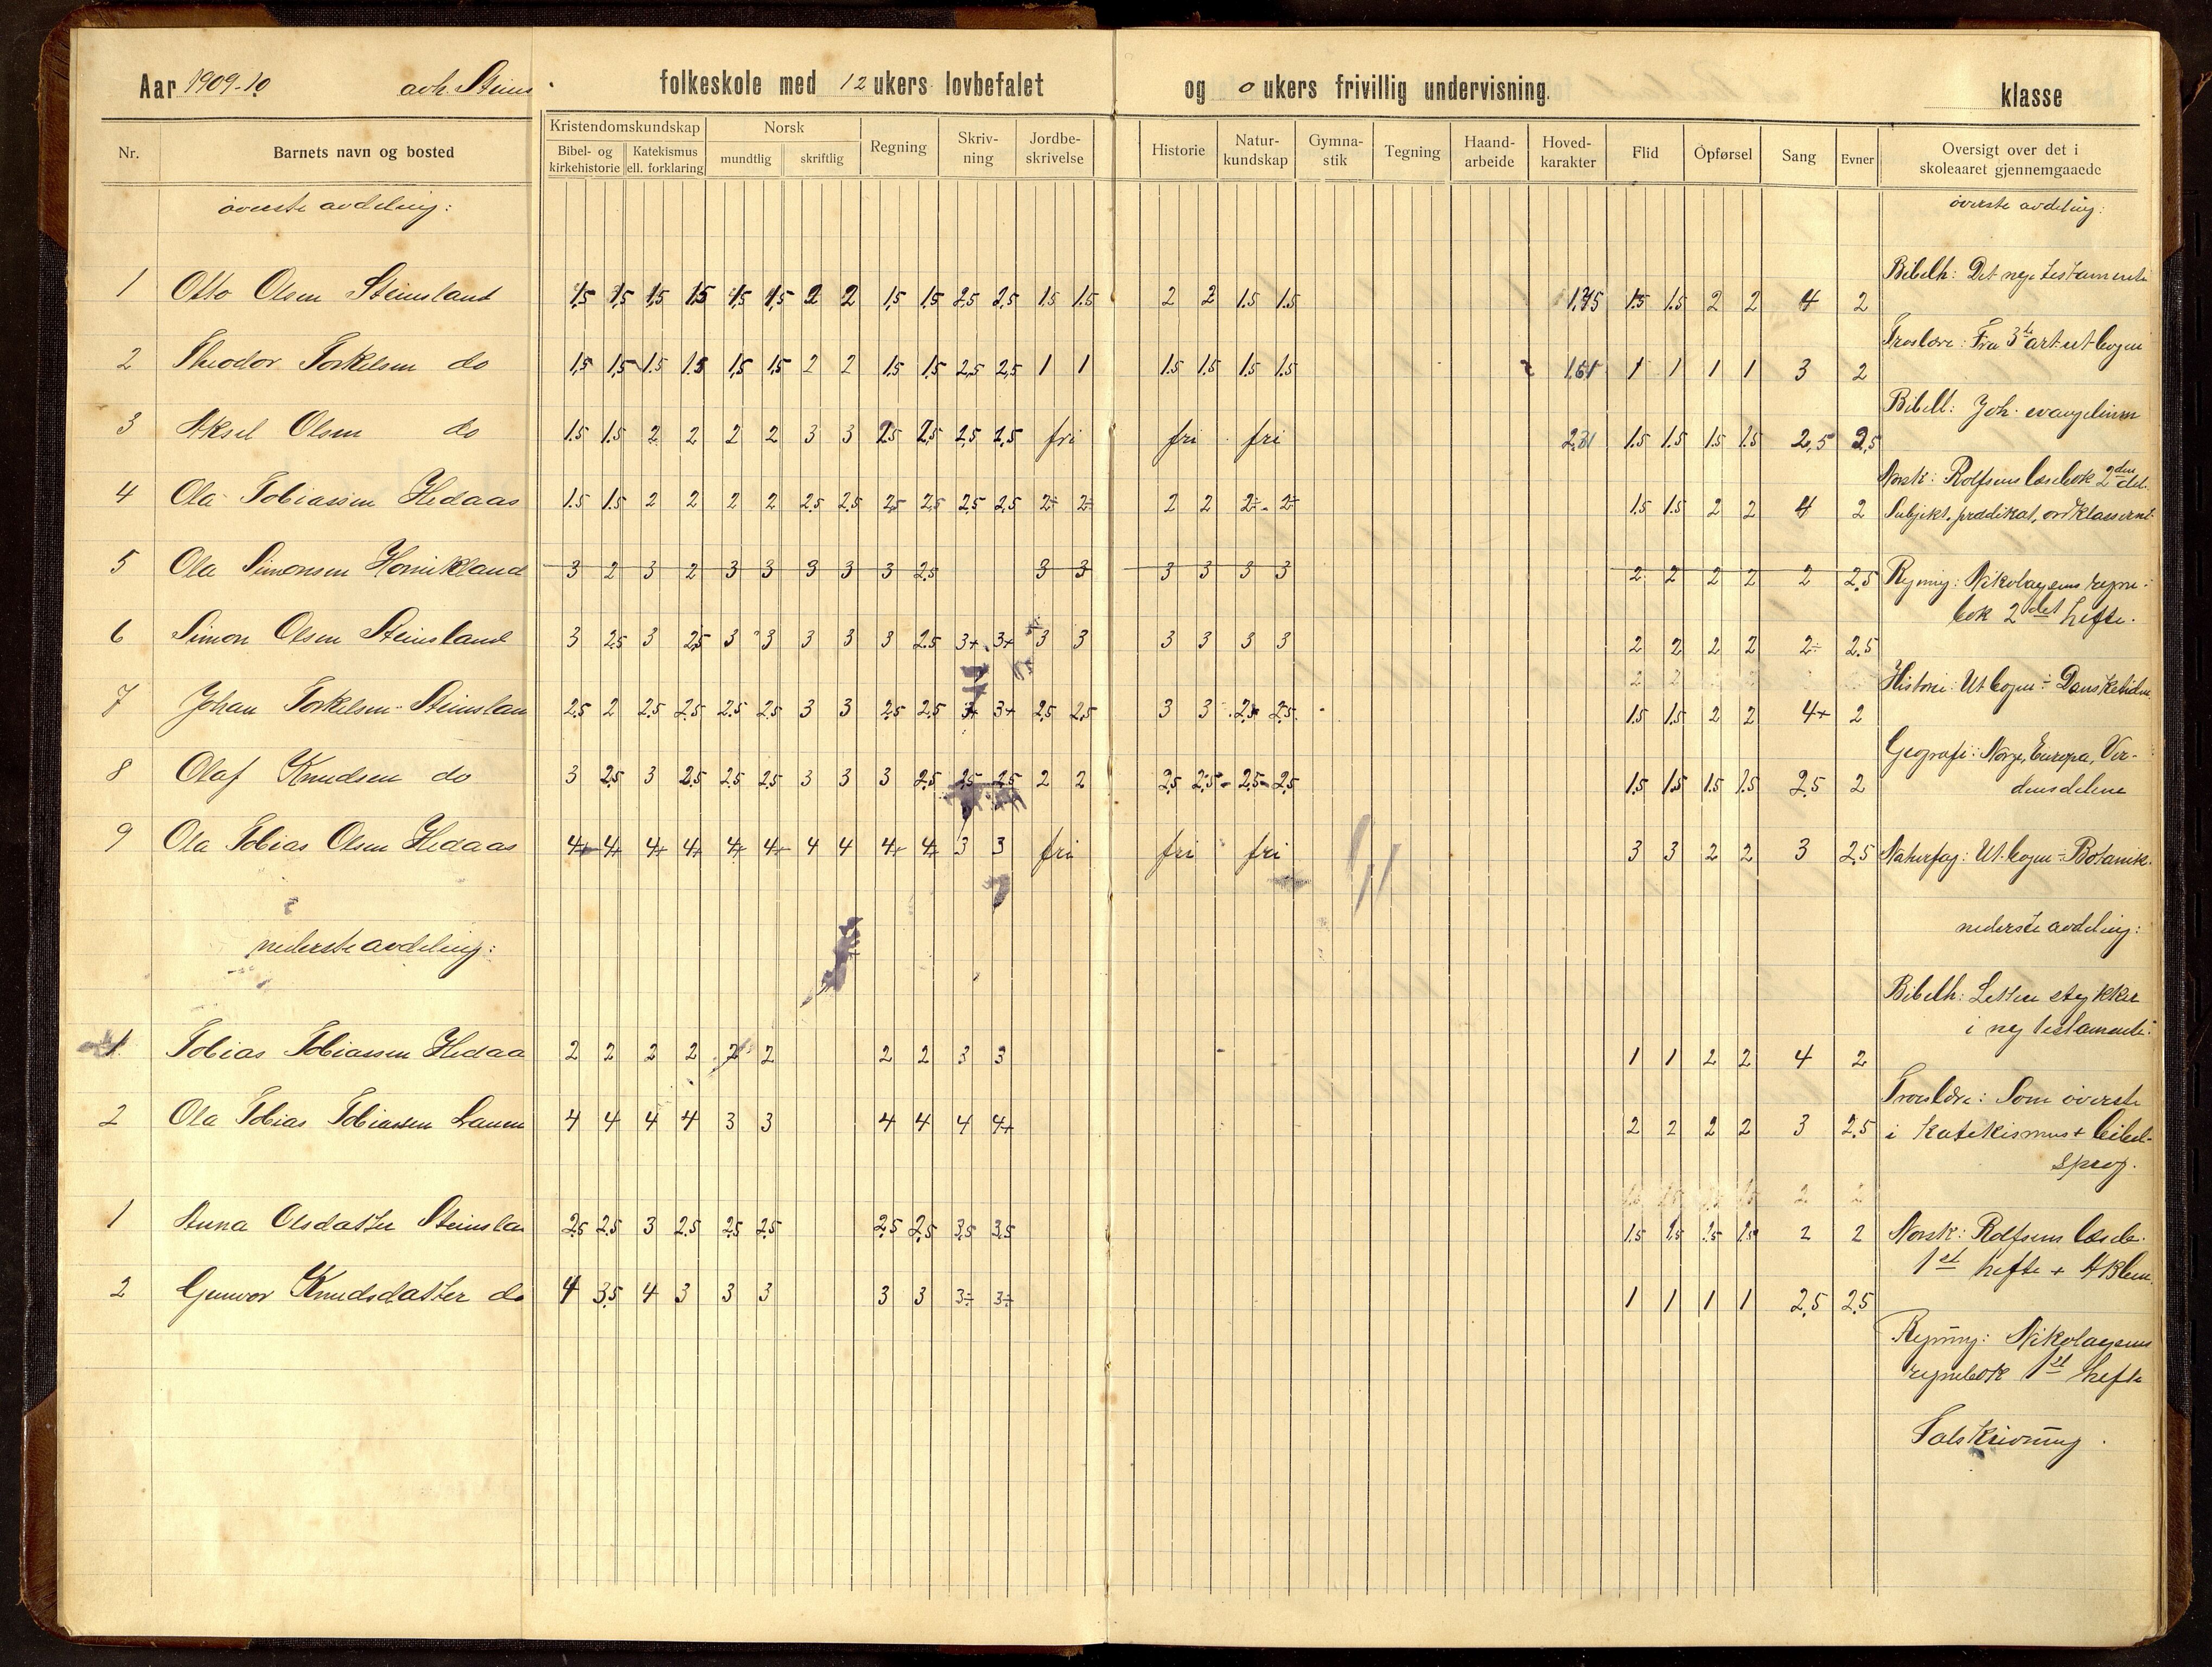 Aar 1909-10 avh. Steins folkeskole med 12 ukers lovbefalet og 0 ukers frivillig undervisning. klasse
Nr. Barnets navn og bosted Kristendomskundskap Norsk Regning Skriv-ning Jordbe-skrivelse Historie Natur-kundskap Gymna-stik Tegning Haand-arbeide Hoved-karakter Flid Opførsel Sang Evner Oversigt over det i skoleaaret gjennemgaaede
Bibel- og kirkehistorie Katekismus ell. forklaring mundtlig skriftlig
øverste avdeling: øverste avdeling:
Bibelh: Det nye testamente
1 Otto Olsen Steinsland 1,5 1,5 1,5 1,5 1,5 1,5 2 2 1,5 1,5 2,5 2,5 1.5 1.5 2 2 1.5 1.5 1,75 1.5 1.5 2 2 4 2
Troslære: Fra 3die art. ut bogen
2 Theodor Torkelsen do 1,5 1,5 1.5 1.5 1,5 1,5 2 2 1.5 1,5 2,5 2,5 1 1 1.5 1.5 1.5 1.5 1.61 1 1 1 1 3 2
Bibell: Joh. evangelium
3 Aksel Olsen do 1.5 1.5 2 2 2 2 3 3 2,5 2,5 2,5 2,5 fri fri fri 2,31 1.5 1.5 1.5 1.5 2,5 2,5
Norsk: Rolfsens læsebok 2den del.
4 Ola Tobiassen Hedaas 1.5 1.5 2 2 2 2 2.5 2.5 2,5 2,5 2,5 2,5 2÷ 2÷ 2 2 2÷ 2÷ 1.5 1.5 2 2 4 2 Subjekt, prædikat, ordklasserne
5 Ola Simonsen Hornikland 3 2 3 2 3 3 3 3 3 2.5 3 3 3 3 3 3 2 2 2 2 2 2,5 Regning: Nikolaysens regne-
bok 2det hefte.
6 Simon Olsen Steinsland 3 2.5 3 2,5 3 3 3 3 3 2.5 3+ 3+ 3 3 3 3 3 3 2 2 2 2 2÷ 2.5
Historie: Ut bogen ÷ Dansketiden
7 Johan Torkelsen Steinslan 2,5 2 2.5 2.5 2.5 2.5 3 3 2,5 2,5 3+ 3+ 2,5 2,5 3 3 2,5 2,5 1.5 1.5 2 2 4+ 2
Geografi: Norge, Europa, Ver-
8 Olaf Knudsen do 3 2,5 3 2,5 2,5 2,5 3 3 3 2,5 2,5 2,5 2 2 2,5 2,5 2,5 2,5 1.5 1.5 1.5 1.5 2,5 2 densdelene
9 Ola Tobias Olsen Hedaas 4+ 4+ 4+ 4+ 4+ 4+ 4 4 4+ 4+ 3 3 fri fri fri 3 3 2 2 3 2,5 Naturfag: Ut bogen ÷ Botanik.
nederste avdeling: nederste avdeling:
Bibelh: Lettere stykker
i nye testamente
1 Tobias Tobiassen Hedaa 2 2 2 2 2 2 2 2 3 3 1 1 2 2 4 2
Troslære: Som øverste
2 Ola Tobias Tobiassen 4 4 4 4 3 3 4 4 4 4+ 2 2 2 2 3 2.5 i katekismus + bibel-
sprog.
1 Anna Olsdatter Steinslan 2,5 2,5 3 2.5 2,5 2,5 2,5 2,5 3,5 3,5 1.5 1.5 1.5 1.5 2 2 Norsk: Rolfsens læseb.
1ste hefte +
2 Gunvor Knudsdatter do 4 3,5 4 3 3 3 3 3 3÷ 3÷ 1 1 1 1 2,5 2,5
Regning: Nikolaysens
regnebok 1ste hefte
Talskrivning.